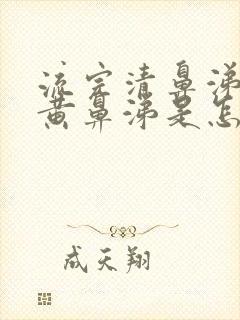 流完清鼻涕
黄鼻涕是怎
成天翔